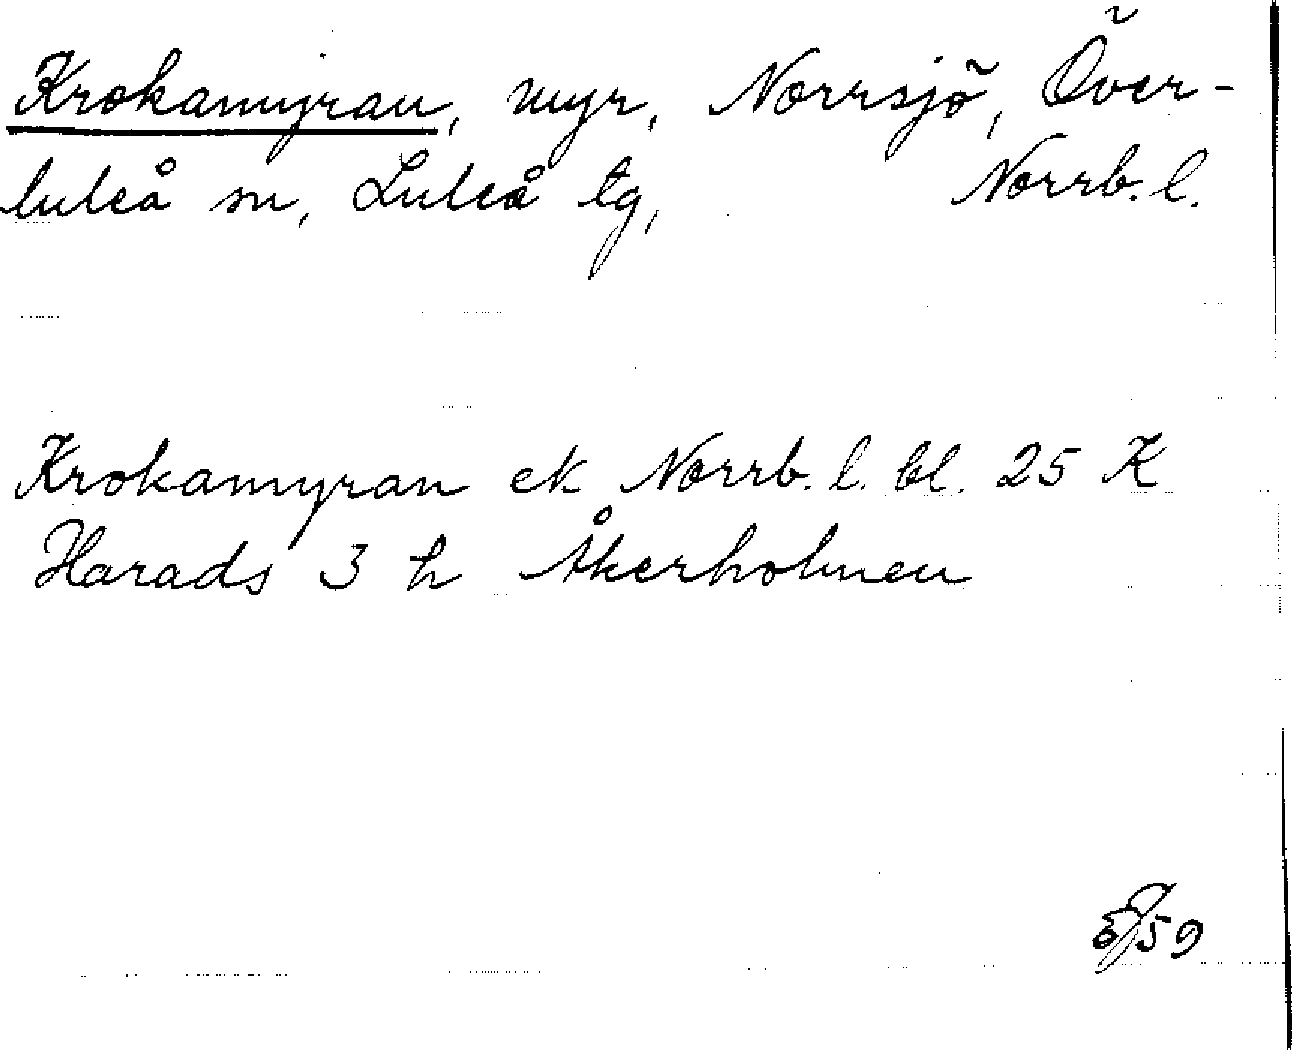 Krokamyran, myr, Norrsjö, Över-
luleå sn, Luleå tg, Norrb. l.
Krokamyran ek Norrb. l. bl. 25 K
Harads 3 h Åkerholmen
/59